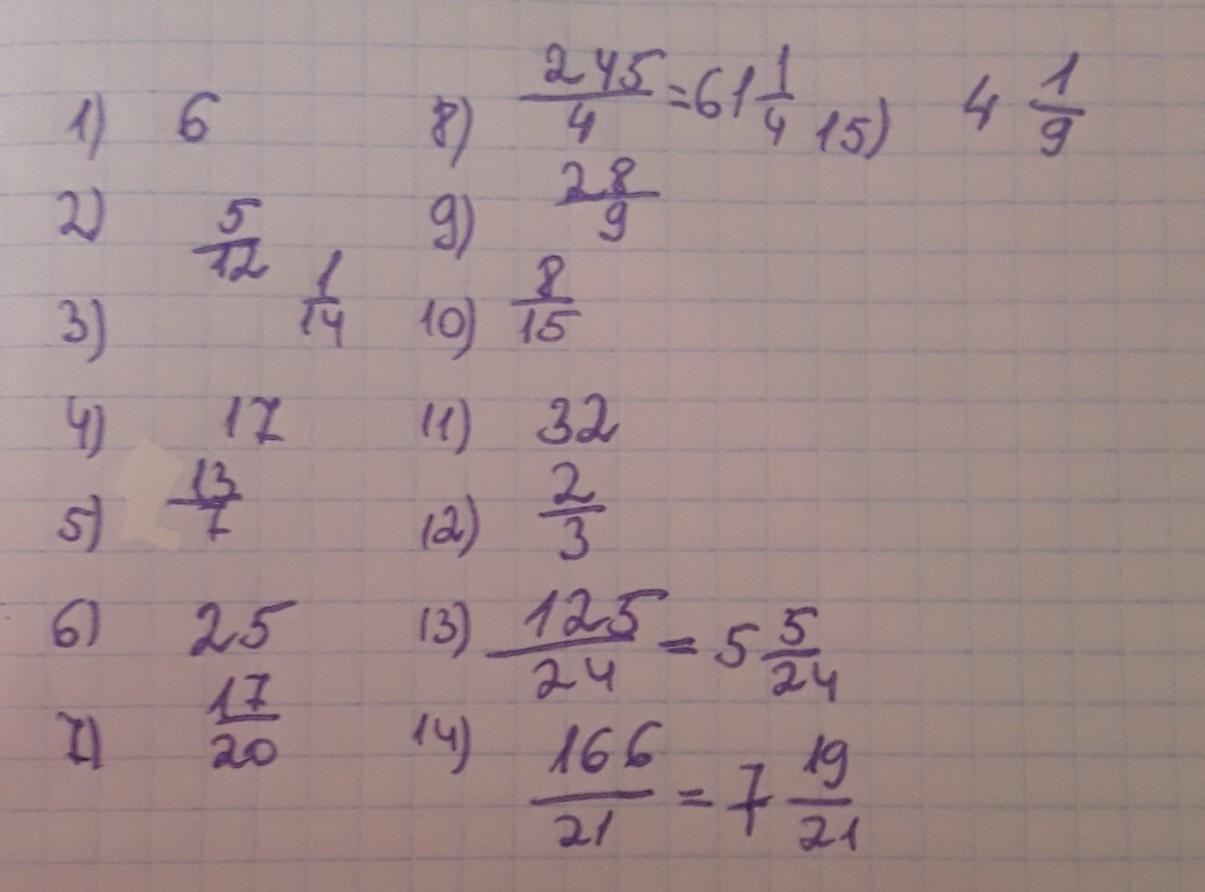 1) 6
2) 5/12
3) 1/14
4) 17
5) 13/7
6) 25
7) 17/20
8) 245/4 = 61 1/4
9) 28/9
10) 8/15
11) 32
12) 2/3
13) 125/24 = 5 5/24
14) 166/21 = 7 19/21
15) 4 1/9